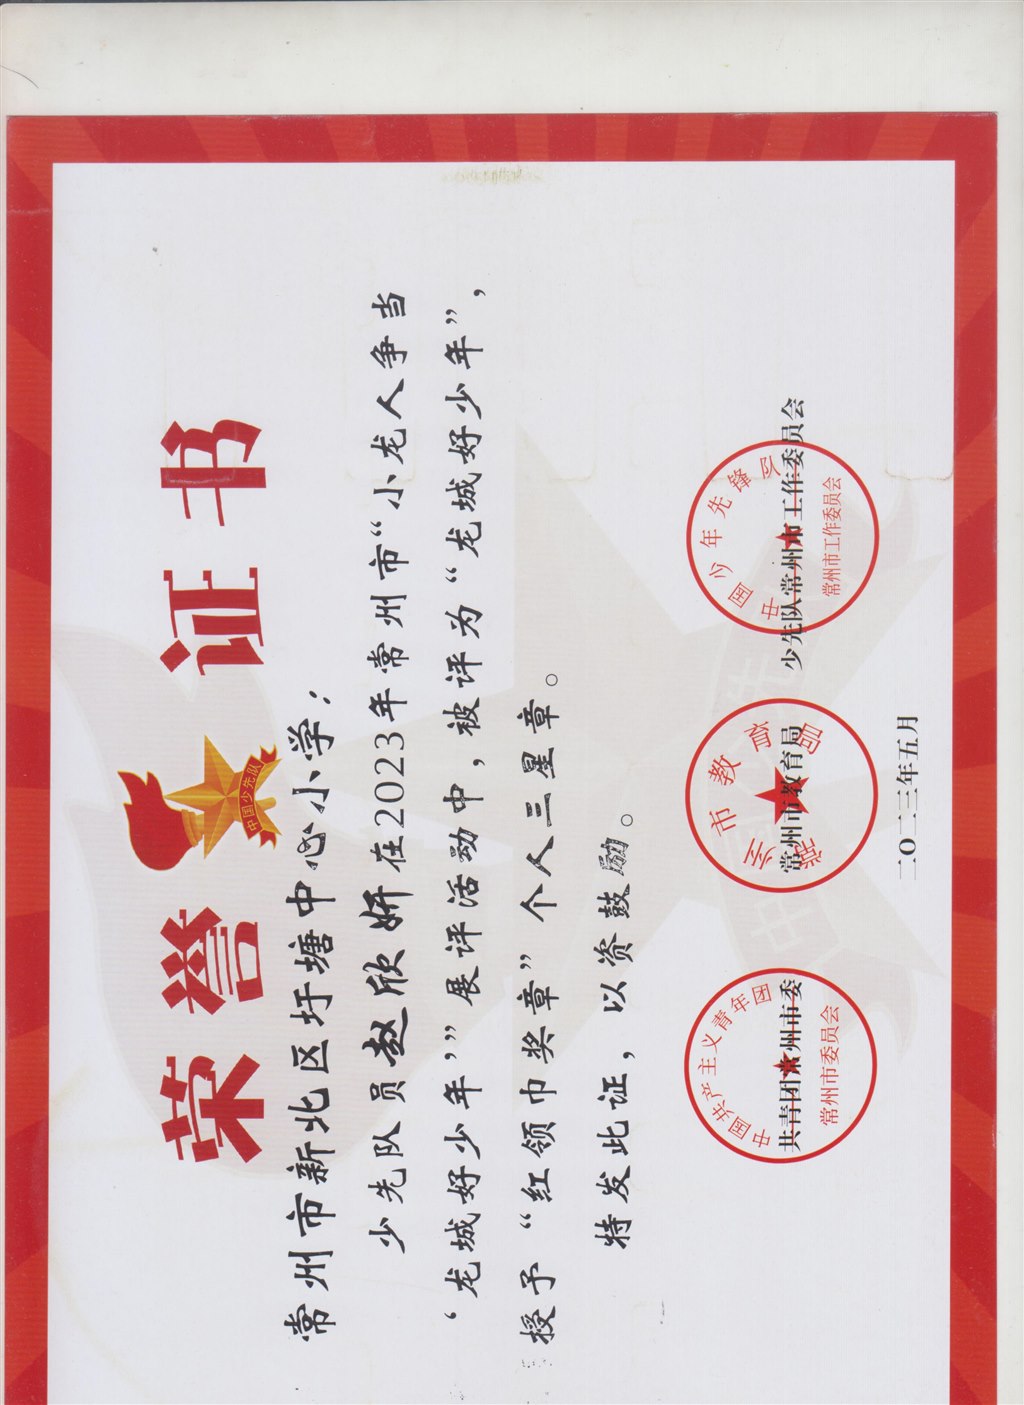 荣誉证书
中国少先队
常州市新北区圩塘中心小学：
少先队员赵欣妍在2023年常州市“小龙人争当
‘龙城好少年’”展评活动中，被评为“龙城好少年”，
授予“红领巾奖章”个人三星章。
特发此证，以资鼓励。
共青团常州市委
常州市教育局
少先队常州市工作委员会
中国共产主义青年团
常州市委员会
常州市教育局
中国少年先锋队
常州市工作委员会
二〇二三年五月